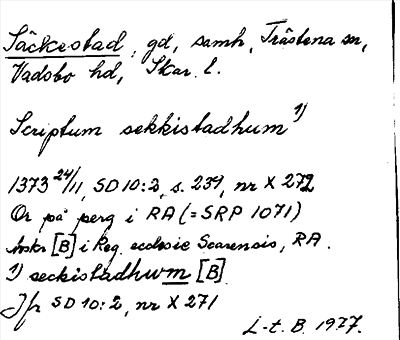 Säckestad, gd, samh, Trästena sn,
Vadsbo hd, Skar. l.
Scriptum sekkistadhum 1)
1373 24/11, SD 10:2, s. 239, nr X 272
Or på perg i RA (= SRP 1071)
Avskr [B] i Reg. ecclesie Scarensis, RA.
1) seckistadhwm [B]
Jfr SD 10:2, nr X 271
L-t. B. 1977.